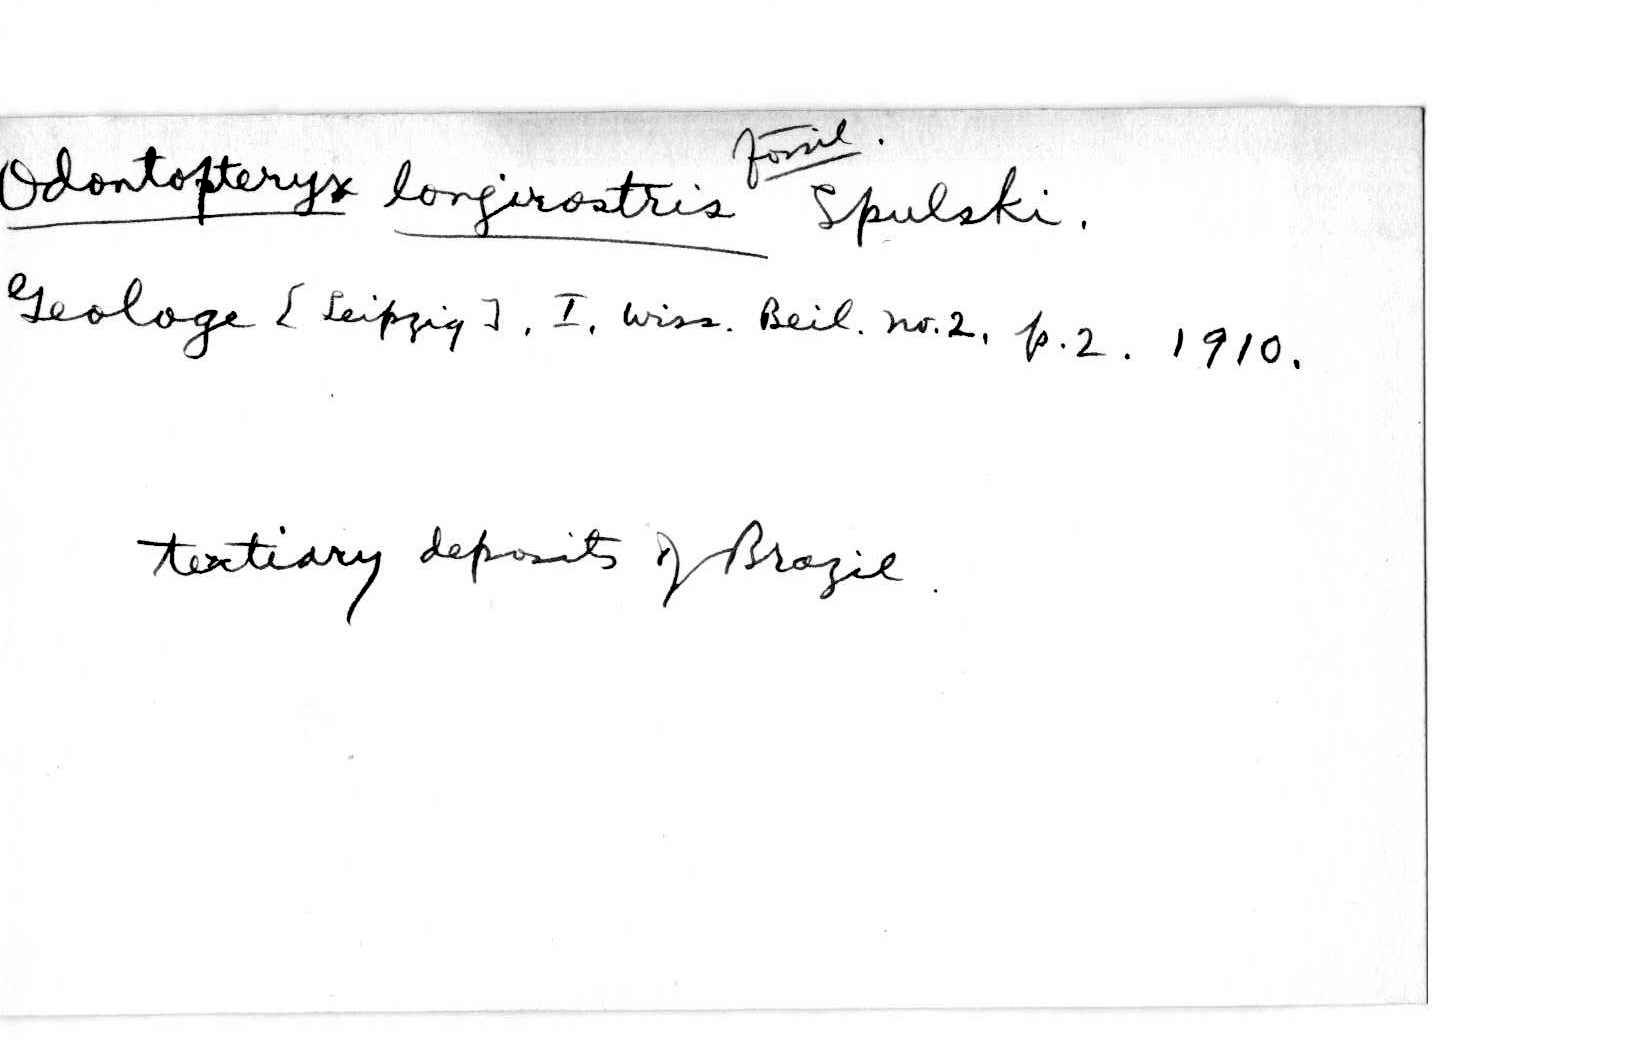 fossil.
Odontopteryx longirostris Spulski.
Geologe [Leipzig], I, Wiss. Beil. no. 2, p. 2. 1910.
tertiary deposits of Brazil.